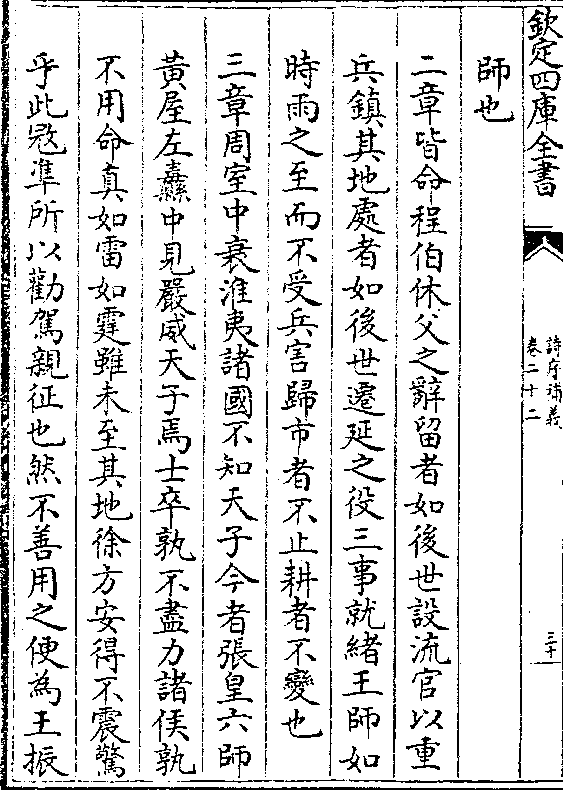 欽定四庫全書
詩序補義
卷二十二
三十
師也
二章皆命程伯休父之辭留者如後世設流官以重
兵鎮其地處者如後世遷延之役三事就緒王師如
時雨之至而不受兵害歸市者不止耕者不變也
三章周室中衰淮夷諸國不知天子今者張皇六師
黃屋左纛中見嚴威天子焉士卒孰不盡力諸侯孰
不用命真如雷如霆雖未至其地徐方安得不震驚
乎此寇準所以勸駕親征也然不善用之便為王振